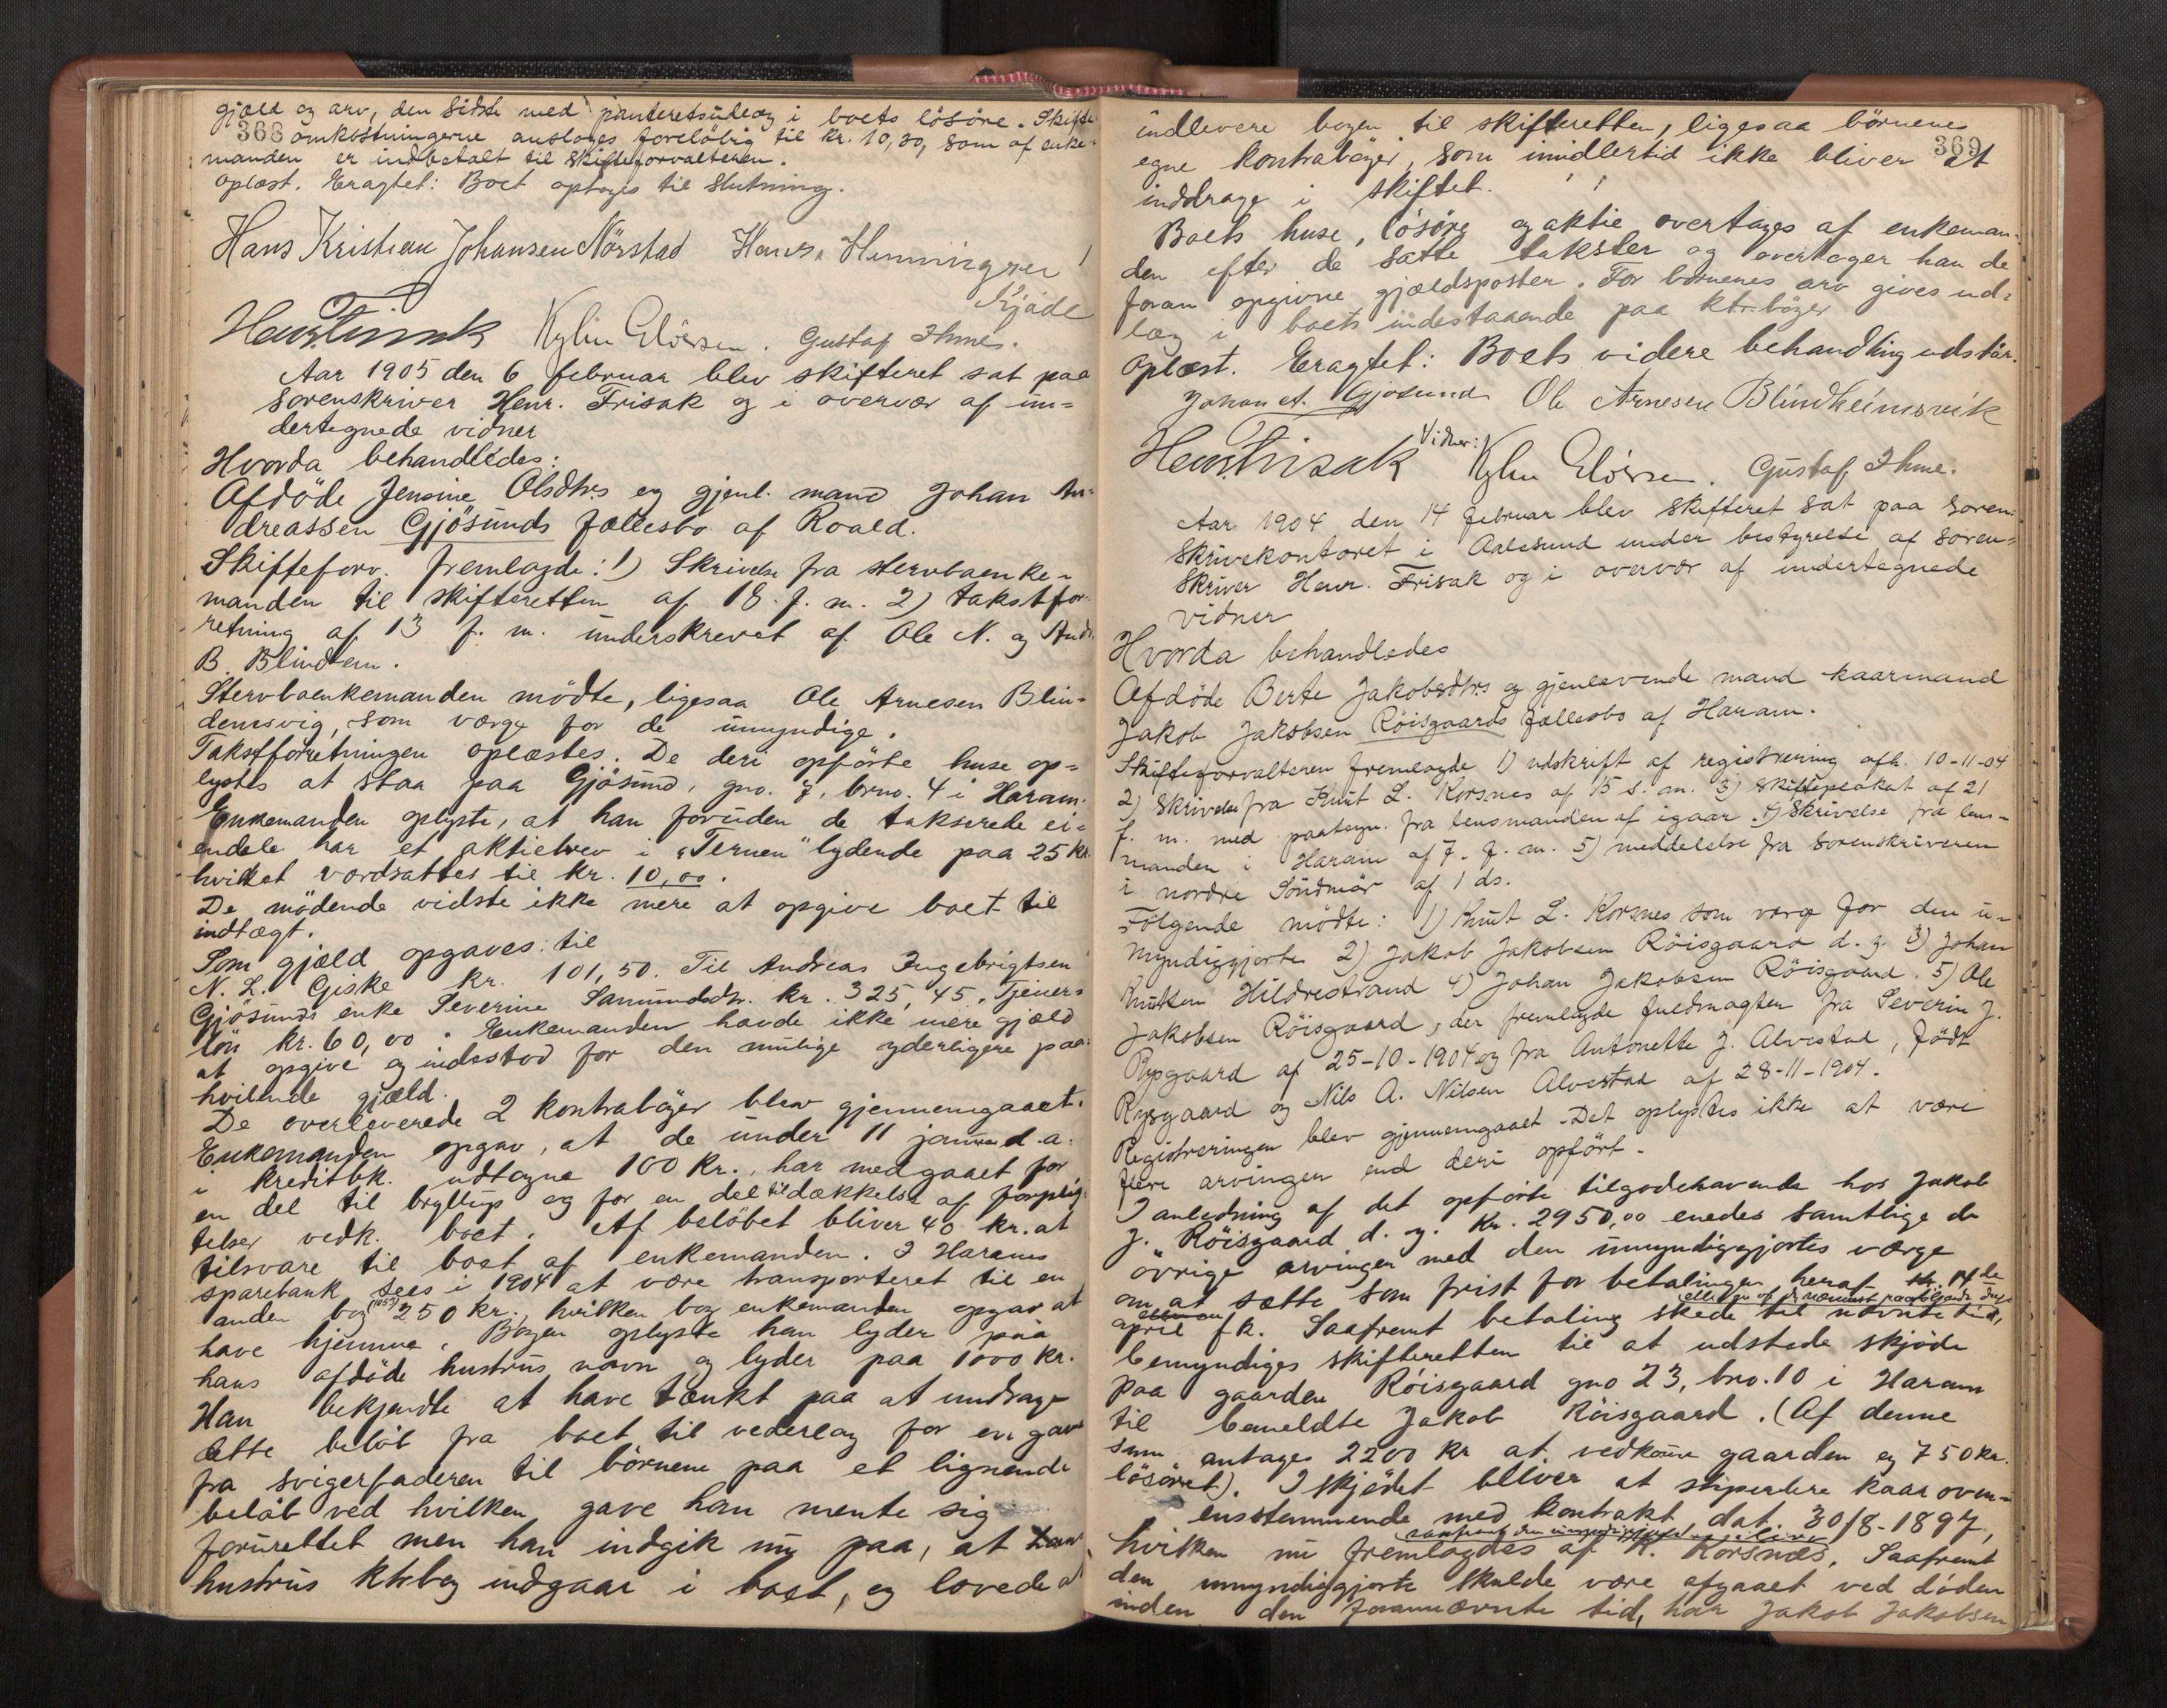 gjæld og arv, den sidste med panteretsudlæg i boets lösöre. Skifte-
368 omkostningerne ansloges foreløbig til kr. 10,30, som af enke-
manden er indbetalt til skifteforvalteren.
Oplæst. Eragtet: Boet optages til slutning.
Hans Kristian Johansen Nörstad Hans Henningsen
Kjöde
Henr. Frisak Kylin Elörsen. Gustaf Ihme.
Aar 1905 den 6 februar blev skifteret sat paa
sorenskriver Henr. Frisak og i overvær af un-
dertegnede vidner
Hvorda behandledes:
Afdöde Jensine Olsdtrs og gjenl. mand Johan An-
dreassen Gjösunds fællesbo af Roald.
Skifteforv. fremlagde: 1) Skrivelse fra stervboenke-
manden til skifteretten af 18. f. m. 2) takstfor-
retning af 13 f. m. underskrevet af Ole N. og Andr.
B. Blindem.
Stervboenkemanden mödte, ligesaa Ole Arnesen Blin-
demsvig, som værge for de umyndige.
Takstforretningen oplæstes. De deri opförte huse op-
lystes at staa paa Gjösund, gno. 7, brno. 4 i Haram.
Enkemanden oplyste, at han foruden de takserede ei-
endele har et aktiebrev i "Ternen" lydende paa 25 kr.
hvilket værdsattes til kr. 10,00.
De mödende vidste ikke mere at opgive boet til
indtægt.
Som gjæld opgaves: til
N. L. Giske kr. 101,50. Til Andreas Ingebrigtsen
Gjösunds enke Severine Samundsdtr. kr. 325,45. Tjener-
lön kr. 60,00. Enkemanden havde ikke mere gjæld
at opgive og indestod for den mulige yderligere paa-
hvilende gjæld.
De overleverede 2 kontraböger blev gjennemgaaet.
Enkemanden opgav, at de under 11 januar d. a.
i kreditbk. udtagne 100 kr., har medgaaet for
en del til bryllup og for en del til dækkelse af forplig-
telser vedk. boet. Af belöbet bliver 40 kr. at
tilsvare til boet af enkemanden. I Harams
sparebank sees i 1904 at være transporteret til en
anden bog (1053) 250 kr., hvilken bog enkemanden opgav at
have hjemme. Bogen oplyste han lyder paa
hans afdöde hustrus navn og lyder paa 1000 kr.
Han bekjendte at have tænkt paa at unddrage
dette belöb fra boet til vederlag for en gave
fra svigerfaderen til börnene paa et lignende
belöb ved hvilken gave han mente sig
forurettet men han indgik nu paa, at
hustrus ktrbog indgaar i boet, og lovede at
indlevere bogen til skifteretten, ligesaa börnenes
369
egne kontraböger, som imidlertid ikke bliver at
inddrage i skiftet.
Boets huse, lösöre og aktie overtages af enkeman-
den efter de satte takster og overtager han de
foran opgivne gjældsposter. For börnenes arv gives ud-
læg i boets indestaaende paa ktrböger
Oplæst. Eragtet: Boets videre behandling udstår.
Johan A. Gjösund Ole Arnesen Blindheimsvik
Vidner:
Henr. Frisak Kylin Elörsen. Gustaf Ihme.
Aar 1904 den 14 februar blev skifteret sat paa soren-
skriverkontoret i Aalesund under bestyrelse af soren-
skriver Henr. Frisak og i overvær af undertegnede
vidner
Hvorda behandledes
Afdöde Berte Jakobsdtrs og gjenlevende mand kaarmand
Jakob Jakobsen Röisgaards fællesbo af Haram.
Skifteforvalteren fremlagde 1) udskrift af registrering afh. 10-11-04
2) Skrivelse fra Knut L. Korsnes af 15 s. m. 3) skifteplakat af 21
f. m. med paategn. fra lensmanden af igaar. 4) Skrivelse fra lens-
manden i Haram af 7. f. m. 5) meddelelse fra sorenskriveren
i nordre Söndmör af 1 ds.
Fölgende mödte: 1) Knut L. Korsnes som værge for den u-
myndiggjorte 2) Jakob Jakobsen Röisgaard d. y. 3) Johan
Knutsen Hildrestrand 4) Johan Jakobsen Röisgaard. 5) Ole
Jakobsen Röisgaard, der fremlagde fuldmagter fra Severin J.
Rypgaard af 25-10-1904 og fra Antonette J. Alvestad, född
Rysgaard og Nils A. Nilsen Alvestad af 28-11-1904.
Registreringen blev gjennemgaaet. Det oplystes ikke at være
flere arvingen end deri opfört.
I anledning af det opförte tilgodehavende hos Jakob
J. Röisgaard d. y. kr. 2950,00 enedes samtlige de
övrige arvinger med den umyndiggjortes værge
om at sætte som frist for betalingen heraf 14de
eller en af de nærmest paafölgende dage
april fk. Saafremt betaling skede til nævnte tid,
bemyndiges skifteretten til at udstede skjöde
paa gaarden Röisgaard gno 23, bno. 10 i Haram
til bemeldte Jakob Röisgaard. (Af denne
sum antages 2200 kr at vedkome gaarden og 750 kr.
lösöret). I skjödet bliver at stipulere kaar over-
ensstemmende med kontrakt, dat. 30/8-1897,
saafremt den umyndiggjorte
hvilken nu fremlagdes af K. Korsnæs. Saafremt
den umyndiggjorte skulde være afgaaet ved döden
inden den forannævnte tid, har Jakob Jakobsen